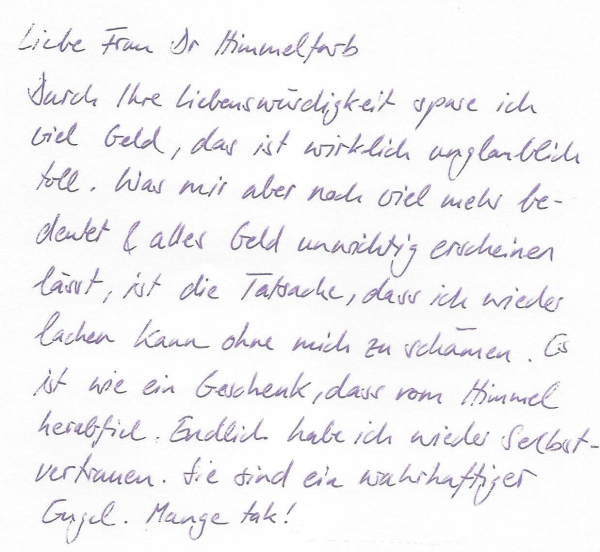 Liebe Frau Dr Himmelfarb
Durch Ihre Liebenswürdigkeit spare ich
viel Geld, das ist wirklich unglaublich
toll. Was mir aber noch viel mehr be-
deutet & alles Geld unwichtig erscheinen
lässt, ist die Tatsache, dass ich wieder
lachen kann ohne mich zu schämen. Es
ist wie ein Geschenk, dass vom Himmel
herabfiel. Endlich habe ich wieder Selbst-
vertrauen. Sie sind ein wahrhaftiger
Engel. Mange tak!